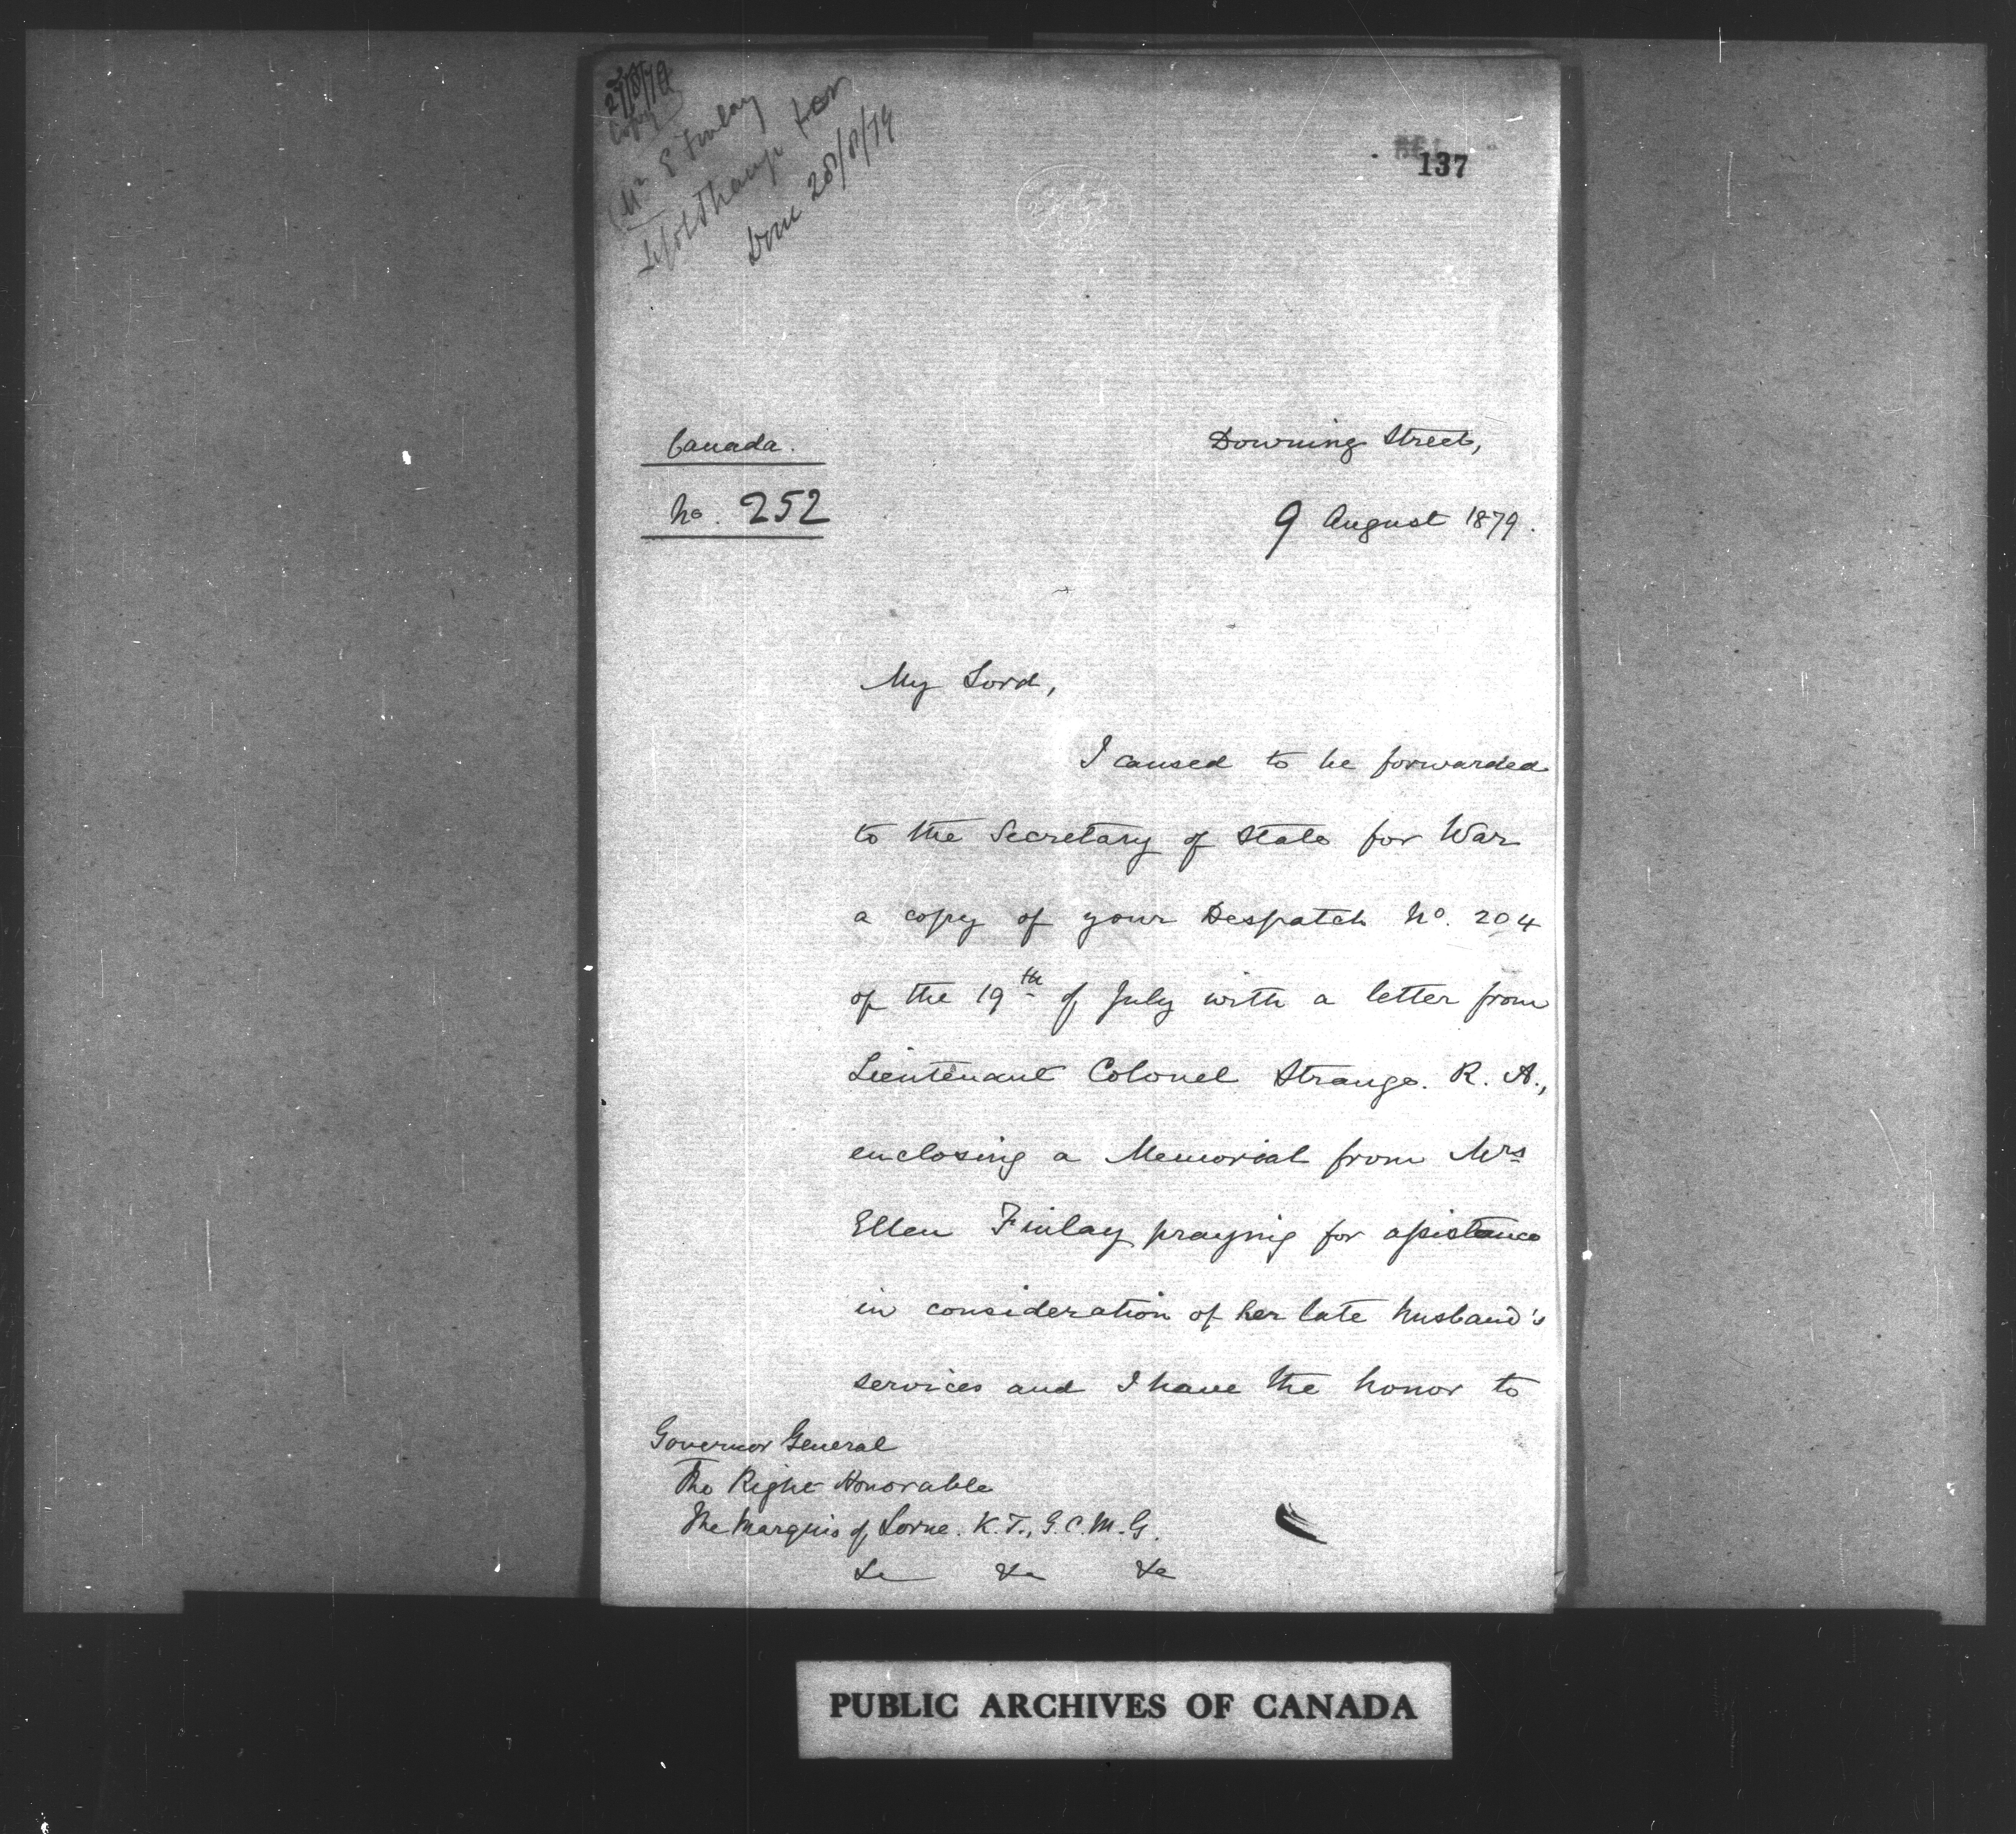 27/8/79
Copy
Mrs E Finlay
Done 28/8/79
137
Canada.
No. 252
Downing Street,
9 August 1879.
My Lord,
I caused to be forwarded
to the Secretary of State for War
a copy of your Despatch No. 204
of the 19th of July with a letter from
Lieutenant Colonel Strange. R. A.,
enclosing a Memorial from Mrs
Ellen Finlay praying for assistance
in consideration of her late husband's
services and I have the honor to
Governor General
The Right Honorable
The Marquis of Lorne. K.T., G.C.M.G.
&c &c &c
PUBLIC ARCHIVES OF CANADA